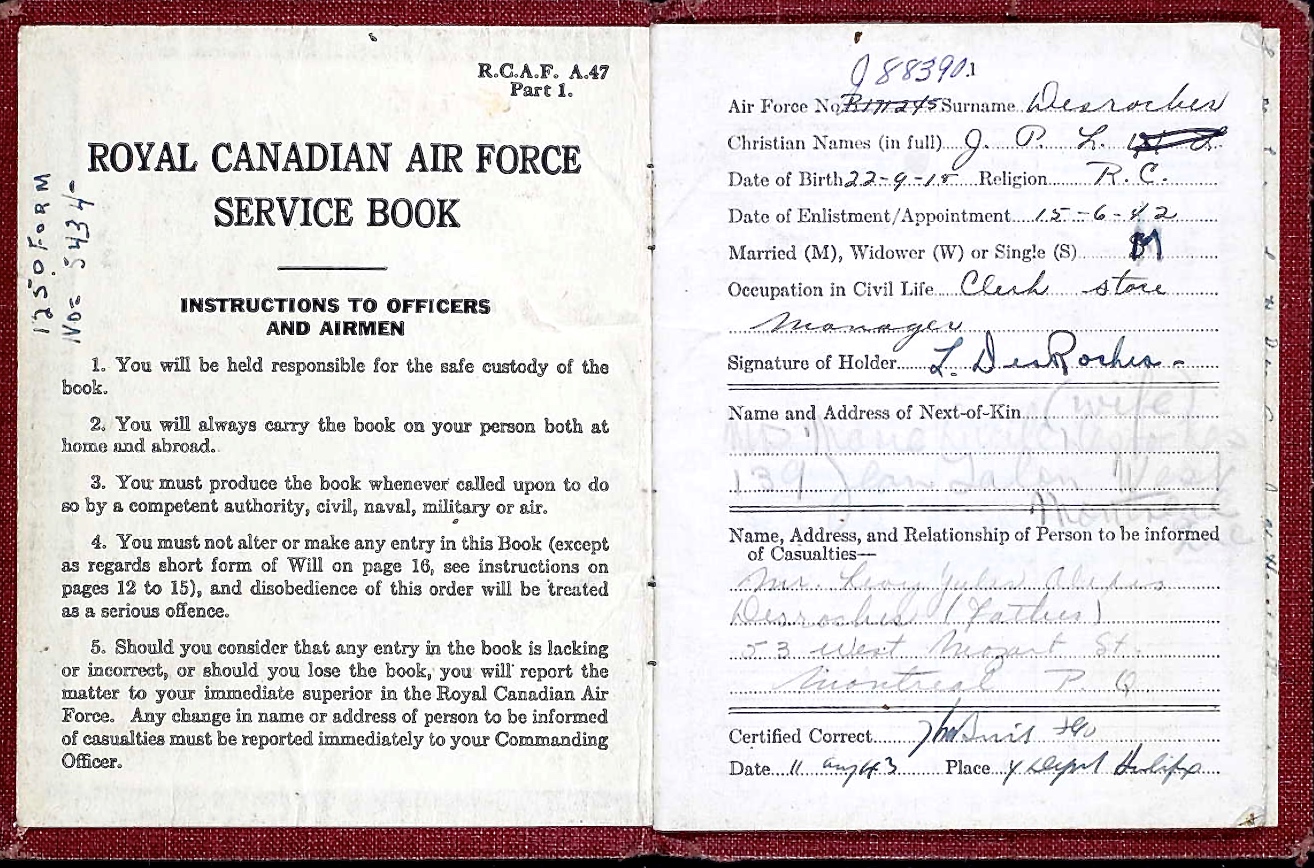 R.C.A.F. A.47
Part 1.
ROYAL CANADIAN AIR FORCE
SERVICE BOOK
1250 FORM
No= 5434-
INSTRUCTIONS TO OFFICERS
AND AIRMEN
1. You will be held responsible for the safe custody of the
book.
2. You will always carry the book on your person both at
home and abroad.
3. You must produce the book whenever called upon to do
so by a competent authority, civil, naval, military or air.
4. You must not alter or make any entry in this Book (except
as regards short form of Will on page 16, see instructions on
pages 12 to 15), and disobedience of this order will be treated
as a serious offence.
5. Should you consider that any entry in the book is lacking
or incorrect, or should you lose the book, you will report the
matter to your immediate superior in the Royal Canadian Air
Force. Any change in name or address of person to be informed
of casualties must be reported immediately to your Commanding
Officer.
J88390.1
Air Force No. Surname Desroches
Christian Names (in full) J. P. L.
Date of Birth 22-9-15 Religion R.C.
Date of Enlistment/Appointment 15-6-42
Married (M), Widower (W) or Single (S) M
Occupation in Civil Life Clerk store
Manager
Signature of Holder L. DesRoches-
Name and Address of Next-of-Kin (wife)
Desroches
139 Jean Talon West
Montreal
Name, Address, and Relationship of Person to be informed
of Casualties—
Mr. Jules
Desroches (Father)
53 West Mozart St.
Montreal P. Q.
Certified Correct
Date 11 Aug 43 Place Y Depot Halifax